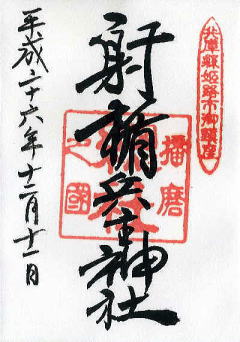 兵庫縣姫路市御鎮座
射楯兵主神社
播磨
之國
平成二十六年十二月十二日